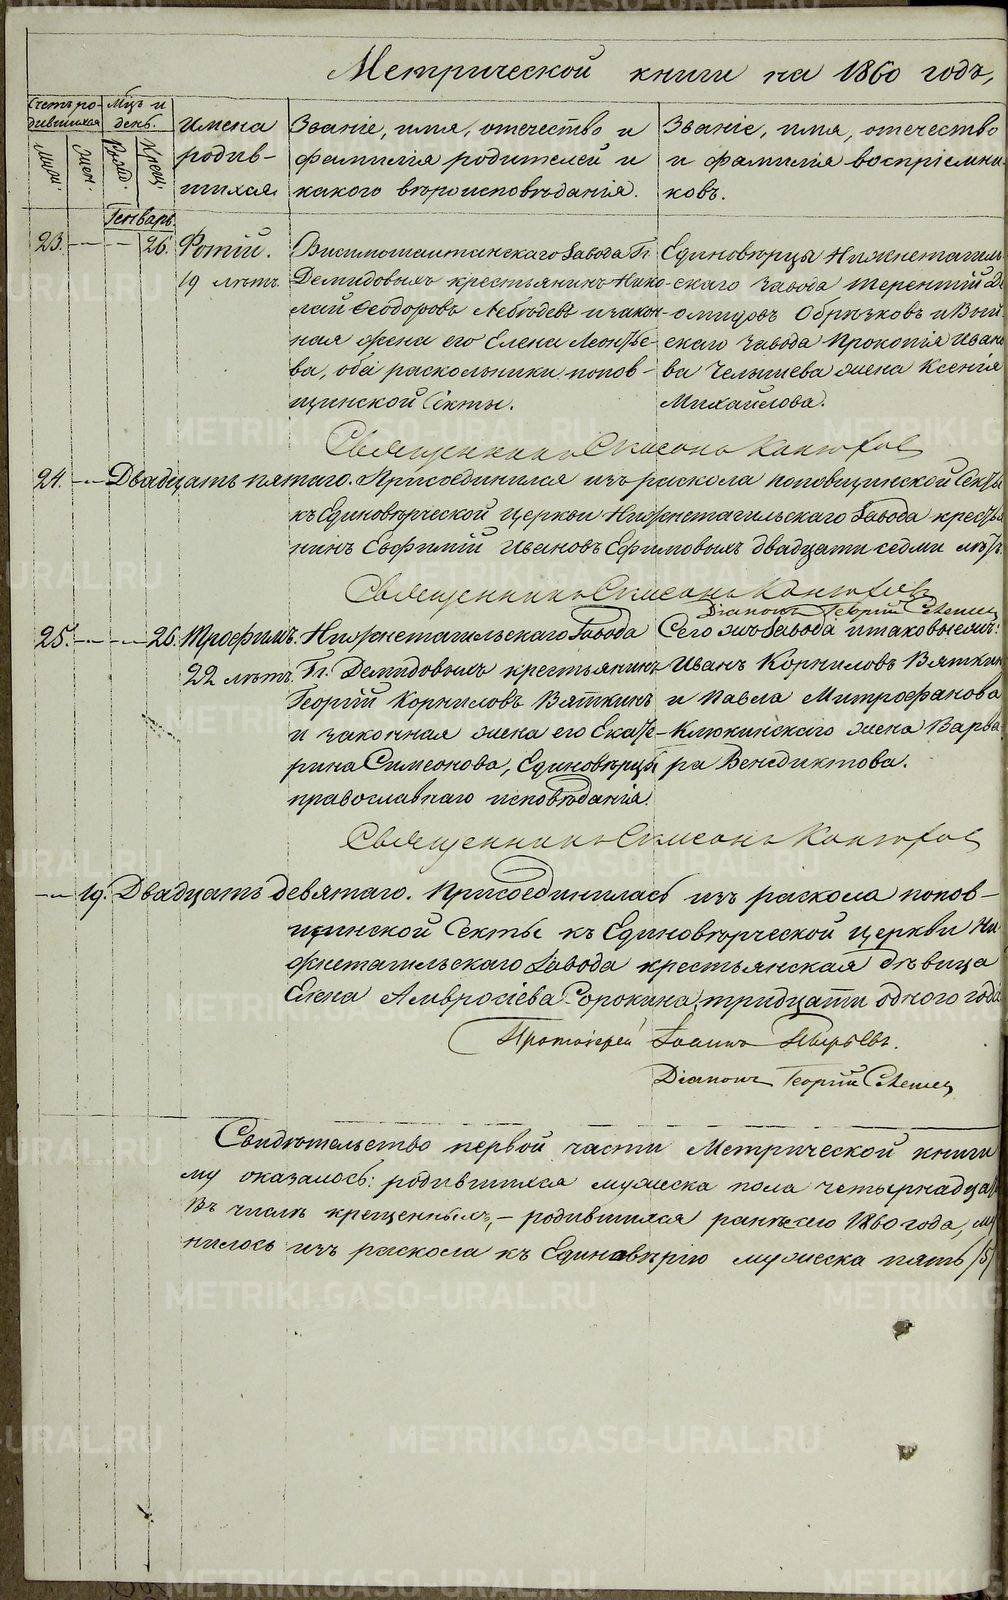 Метрической книги на 1860 годъ,
Счетъ ро-
дившихся
Мцъ и
день.
Имена
родив-
шихся.
Званіе, имя, отечество и
фамилія родителей и
какого вѣроисповѣданія.
Званіе, имя, отечество
и фамилія воспріемни-
ковъ.
Муж.
Жен.
Рожд.
Крещ.
Генварь.
23.
26.
Фотій.
19 лѣтъ.
Висимошайтанскаго Завода Гг.
Демидовыхъ крестьянинъ Нико-
лай Ѳеодоровъ Лебедевъ и закон-
ная жена его Елена Леонтье-
ва, оба раскольники попов-
щинской секты.
Единовѣрцы Нижнетагиль-
скаго Завода Терентій
Обрѣзковъ и Выи
скаго Завода Прокопія Ивано
ва Челышева жена Ксенія
Михайлова.
Священникъ Симеонъ Конюхов
24. Двадцать пятаго. Присоединился изъ раскола поповщинской секты
къ Единовѣрческой церкви Нижнетагильскаго Завода кресть
нинъ Евфимій Ивановъ Ефимовыхъ двадцати седми лѣтъ
Священникъ Симеонъ Конюховъ
Діаконъ Георгій
25.
26.
Трофимъ.
22 лѣтъ.
Нижнетагильскаго Завода
Гг. Демидовыхъ крестьянинъ
Георгій Корниловъ Вяткинъ
и законная жена его Екате-
рина Симеонова, Единовѣрцы
православнаго исповѣданія.
Сего жъ Завода и таковыемъ:
Иванъ Корниловъ Вяткин
и Павла Митрофанова
Клюкинскаго жена Варва
ра Венедиктова.
Священникъ Симеонъ Конюхов
19. Двадцать девятаго. Присоединилась изъ раскола попов-
щинской секты къ Единовѣрческой церкви Ни
жнетагильскаго Завода крестьянская дѣвица
Елена Амвросіева Сорокина, тридцати одного года
Протоіерей Іоаннъ
Діаконъ Георгій
Свидѣтельство первой части Метрической книги
му оказалось: родившихся мужеска пола четырнадца
въ числѣ крещенныхъ, – родившихся ранѣе сего 1860 года, му
нилось изъ раскола къ Единовѣрію мужеска пять /5/
METRIKI.GASO-URAL.RU